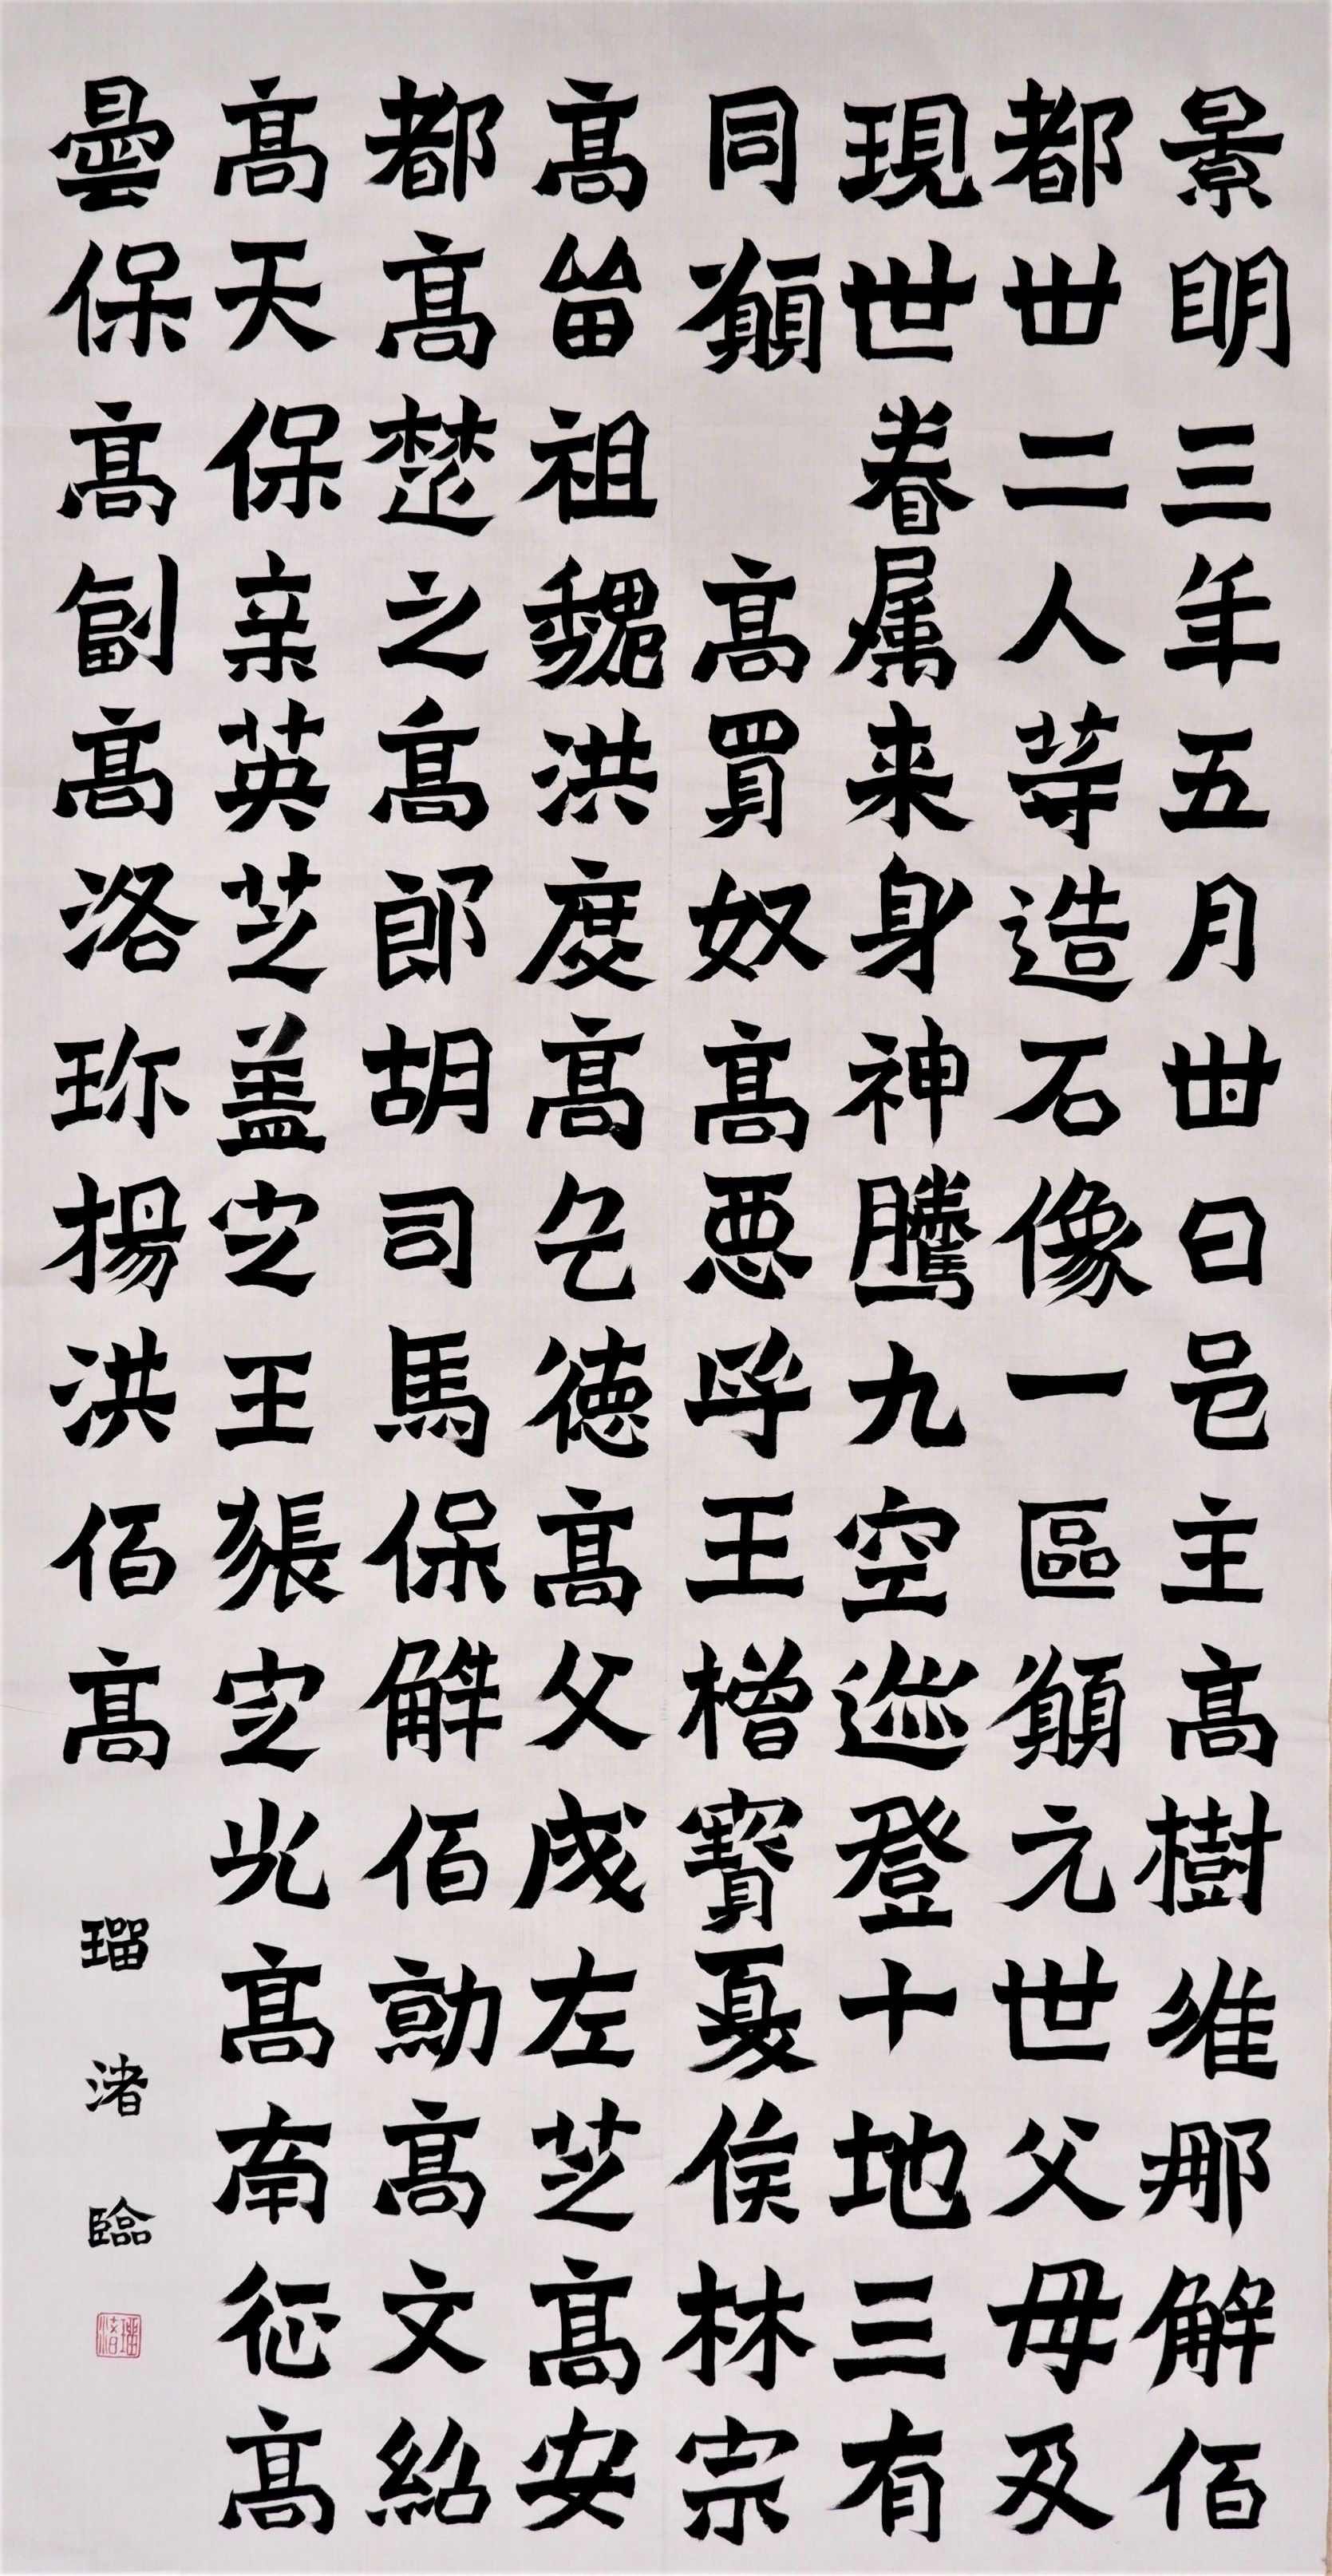 景明三年五月丗日邑主高樹維那解佰
都丗二人等造石像一區願元世父母及
現世眷属来身神騰九空迹登十地三有
同願高買奴高悪呼王橧寶夏侯林宗
高留祖魏洪度高乞德高父成左芝高安
都高楚之高郎胡司馬保解佰勍高文紹
高天保亲英芝盖定王張定光高南征高
曇保高副高洛珎揚洪佰高
瑠渚臨
瑠渚